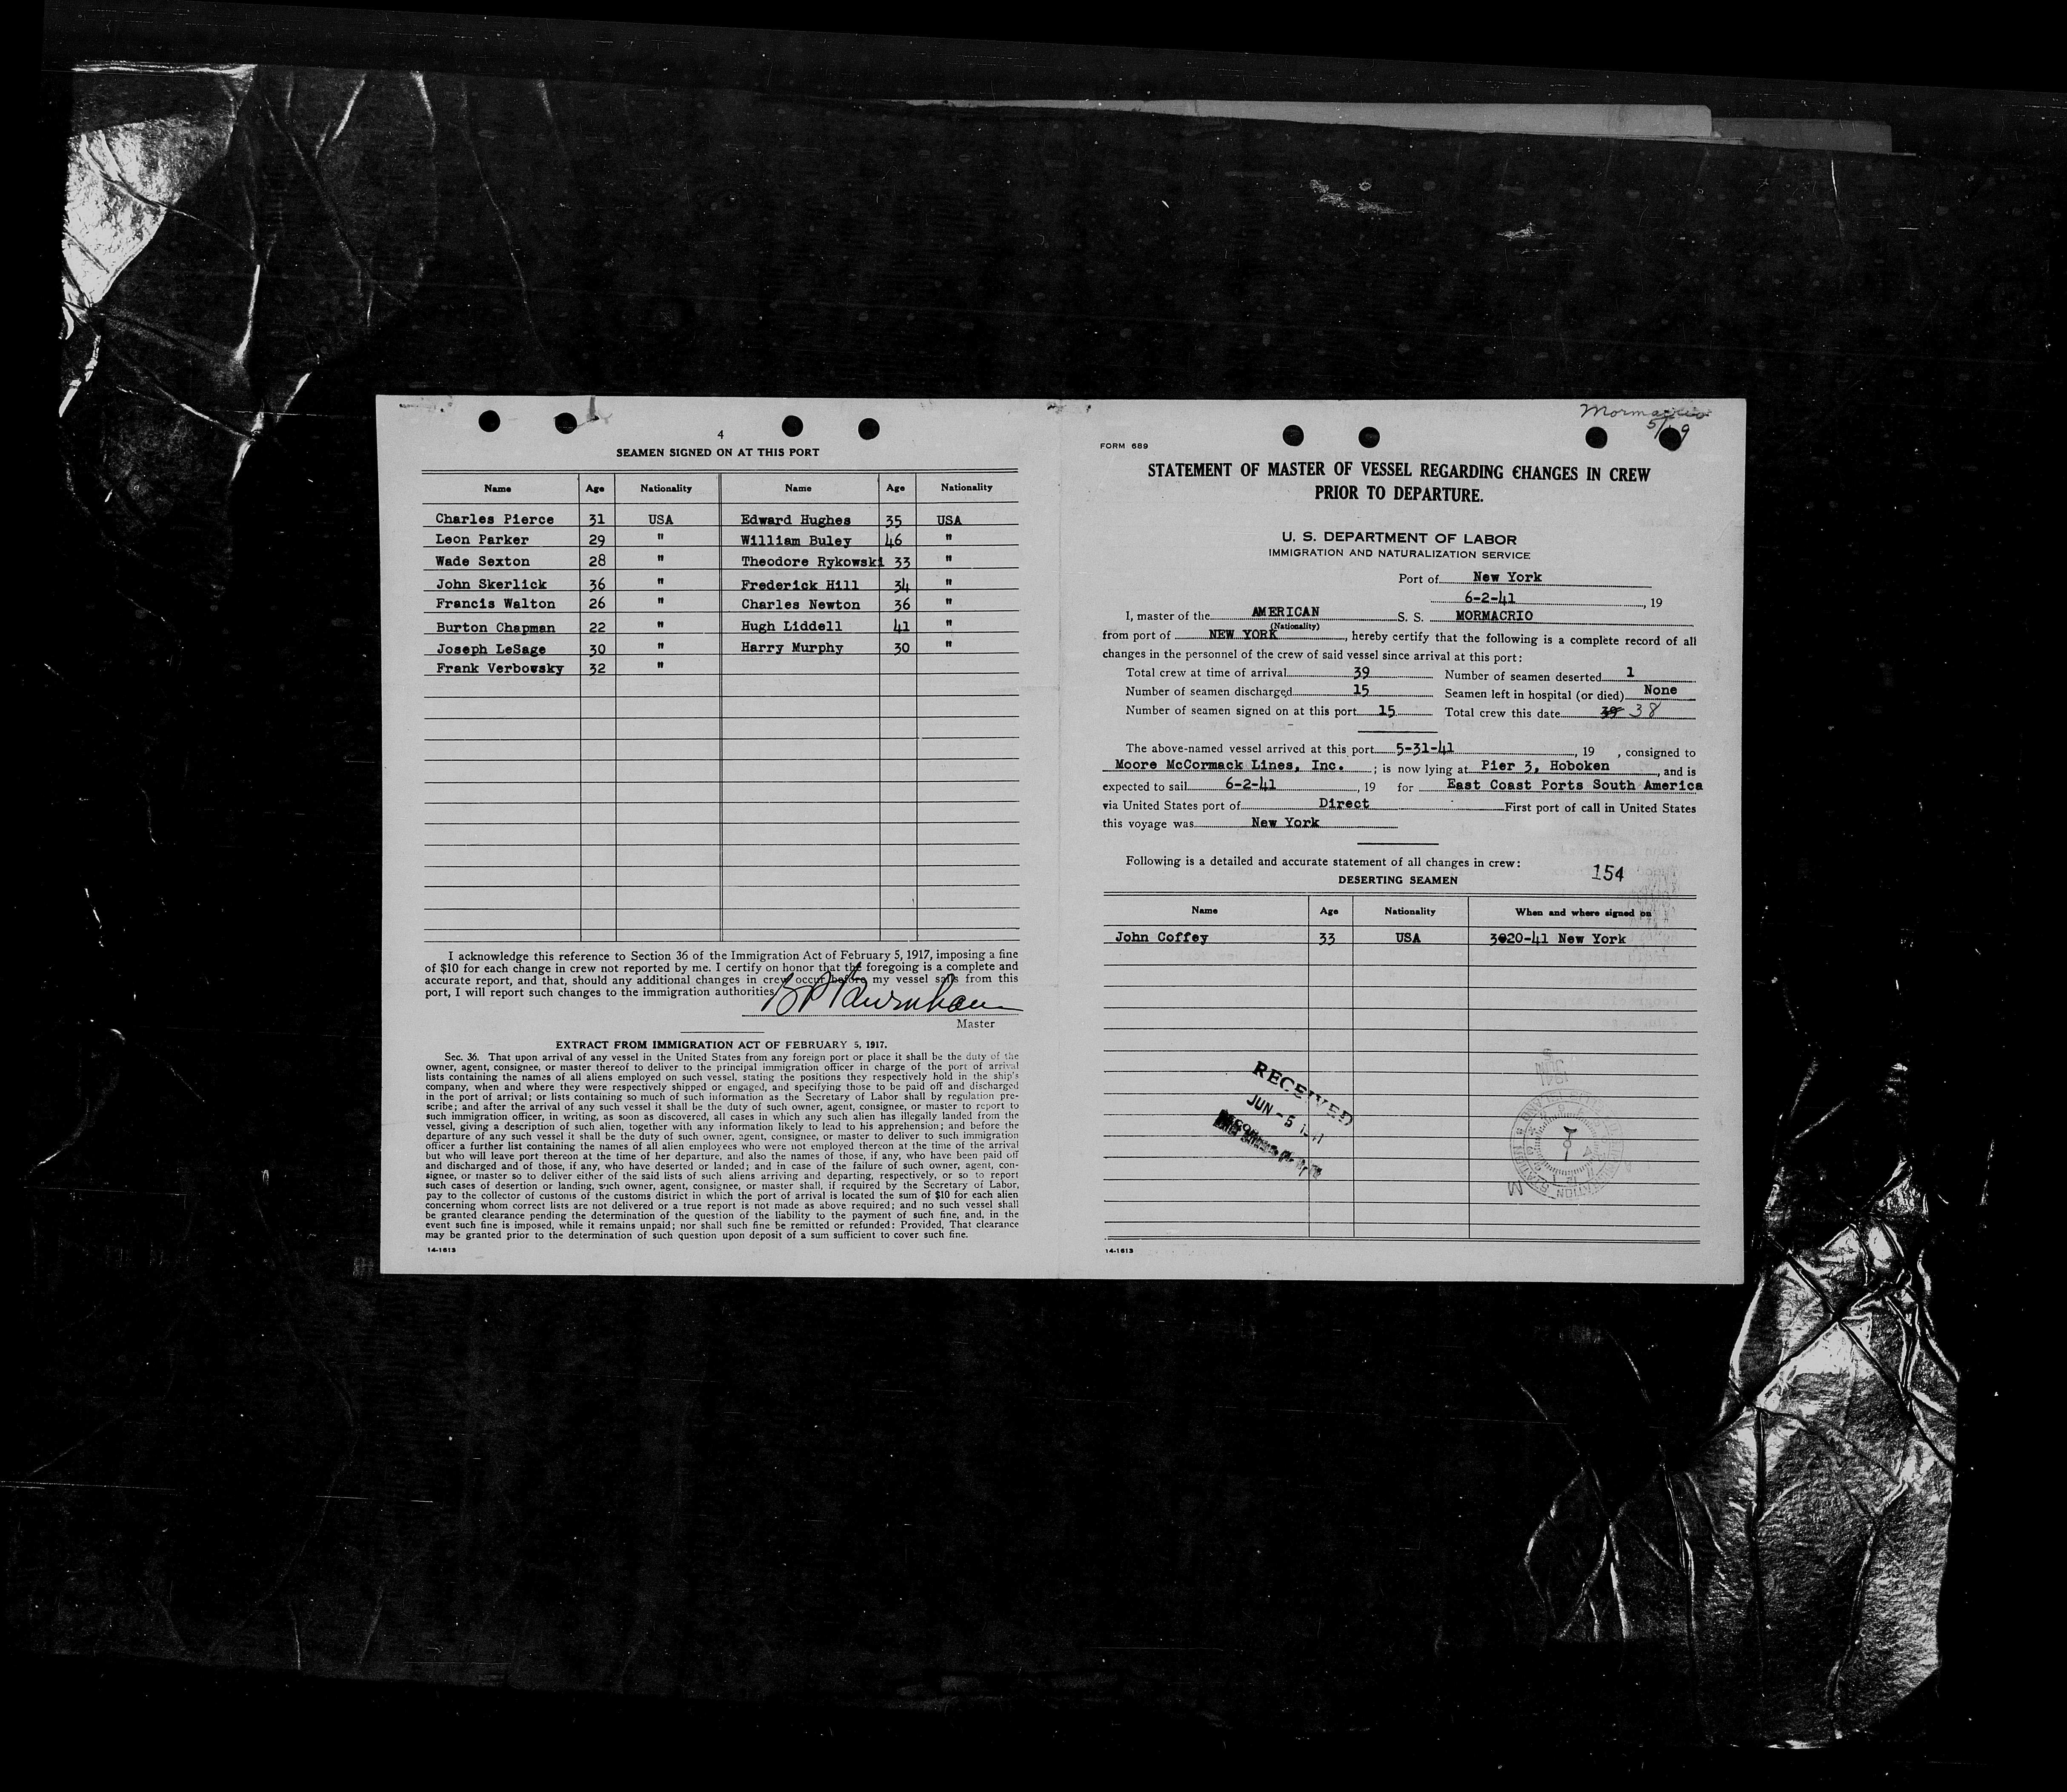 4
SEAMEN SIGNED ON AT THIS PORT
Name Age Nationality Name Age Nationality
Charles Pierce 31 USA Edward Hughes 35 USA
Leon Parker 29 " William Buley 46 "
Wade Sexton 28 " Theodore Rykowski 33 "
John Skerlick 36 " Frederick Hill 34 "
Francis Walton 26 " Charles Newton 36 "
Burton Chapman 22 " Hugh Liddell 41 "
Joseph LeSage 30 " Harry Murphy 30 "
Frank Verbowsky 32 "
I acknowledge this reference to Section 36 of the Immigration Act of February 5, 1917, imposing a fine
of $10 for each change in crew not reported by me. I certify on honor that the foregoing is a complete and
accurate report, and that, should any additional changes in crew occur before my vessel sails from this
port, I will report such changes to the immigration authorities
Master
EXTRACT FROM IMMIGRATION ACT OF FEBRUARY 5, 1917.
Sec. 36. That upon arrival of any vessel in the United States from any foreign port or place it shall be the duty of the
owner, agent, consignee, or master thereof to deliver to the principal immigration officer in charge of the port of arrival
lists containing the names of all aliens employed on such vessel, stating the positions they respectively hold in the ship's
company, when and where they were respectively shipped or engaged, and specifying those to be paid off and discharged
in the port of arrival; or lists containing so much of such information as the Secretary of Labor shall by regulation pre-
scribe; and after the arrival of any such vessel it shall be the duty of such owner, agent, consignee, or master to report to
such immigration officer, in writing, as soon as discovered, all cases in which any such alien has illegally landed from the
vessel, giving a description of such alien, together with any information likely to lead to his apprehension; and before the
departure of any such vessel it shall be the duty of such owner, agent, consignee, or master to deliver to such immigration
officer a further list containing the names of all alien employees who were not employed thereon at the time of the arrival
but who will leave port thereon at the time of her departure, and also the names of those, if any, who have been paid off
and discharged and of those, if any, who have deserted or landed; and in case of the failure of such owner, agent, con-
signee, or master so to deliver either of the said lists of such aliens arriving and departing, respectively, or so to report
such cases of desertion or landing, such owner, agent, consignee, or master shall, if required by the Secretary of Labor,
pay to the collector of customs of the customs district in which the port of arrival is located the sum of $10 for each alien
concerning whom correct lists are not delivered or a true report is not made as above required; and no such vessel shall
be granted clearance pending the determination of the question of the liability to the payment of such fine, and, in the
event such fine is imposed, while it remains unpaid; nor shall such fine be remitted or refunded: Provided, That clearance
may be granted prior to the determination of such question upon deposit of a sum sufficient to cover such fine.
14-1613
Mormacrio
FORM 689
STATEMENT OF MASTER OF VESSEL REGARDING CHANGES IN CREW
PRIOR TO DEPARTURE.
U. S. DEPARTMENT OF LABOR
IMMIGRATION AND NATURALIZATION SERVICE
Port of New York
6-2-41, 19
I, master of the AMERICAN S. S. MORMACRIO
(Nationality)
from port of NEW YORK, hereby certify that the following is a complete record of all
changes in the personnel of the crew of said vessel since arrival at this port:
Total crew at time of arrival 39 Number of seamen deserted 1
Number of seamen discharged 15 Seamen left in hospital (or died) None
Number of seamen signed on at this port 15 Total crew this date 39 38
The above-named vessel arrived at this port 5-31-41, 19 , consigned to
Moore McCormack Lines, Inc. ; is now lying at Pier 3, Hoboken, and is
expected to sail 6-2-41, 19 for East Coast Ports South America
via United States port of Direct First port of call in United States
this voyage was New York
Following is a detailed and accurate statement of all changes in crew:
154
DESERTING SEAMEN
Name Age Nationality When and where signed on
John Coffey 33 USA 3020-41 New York
RECEIVED
JUN - 5
14-1613